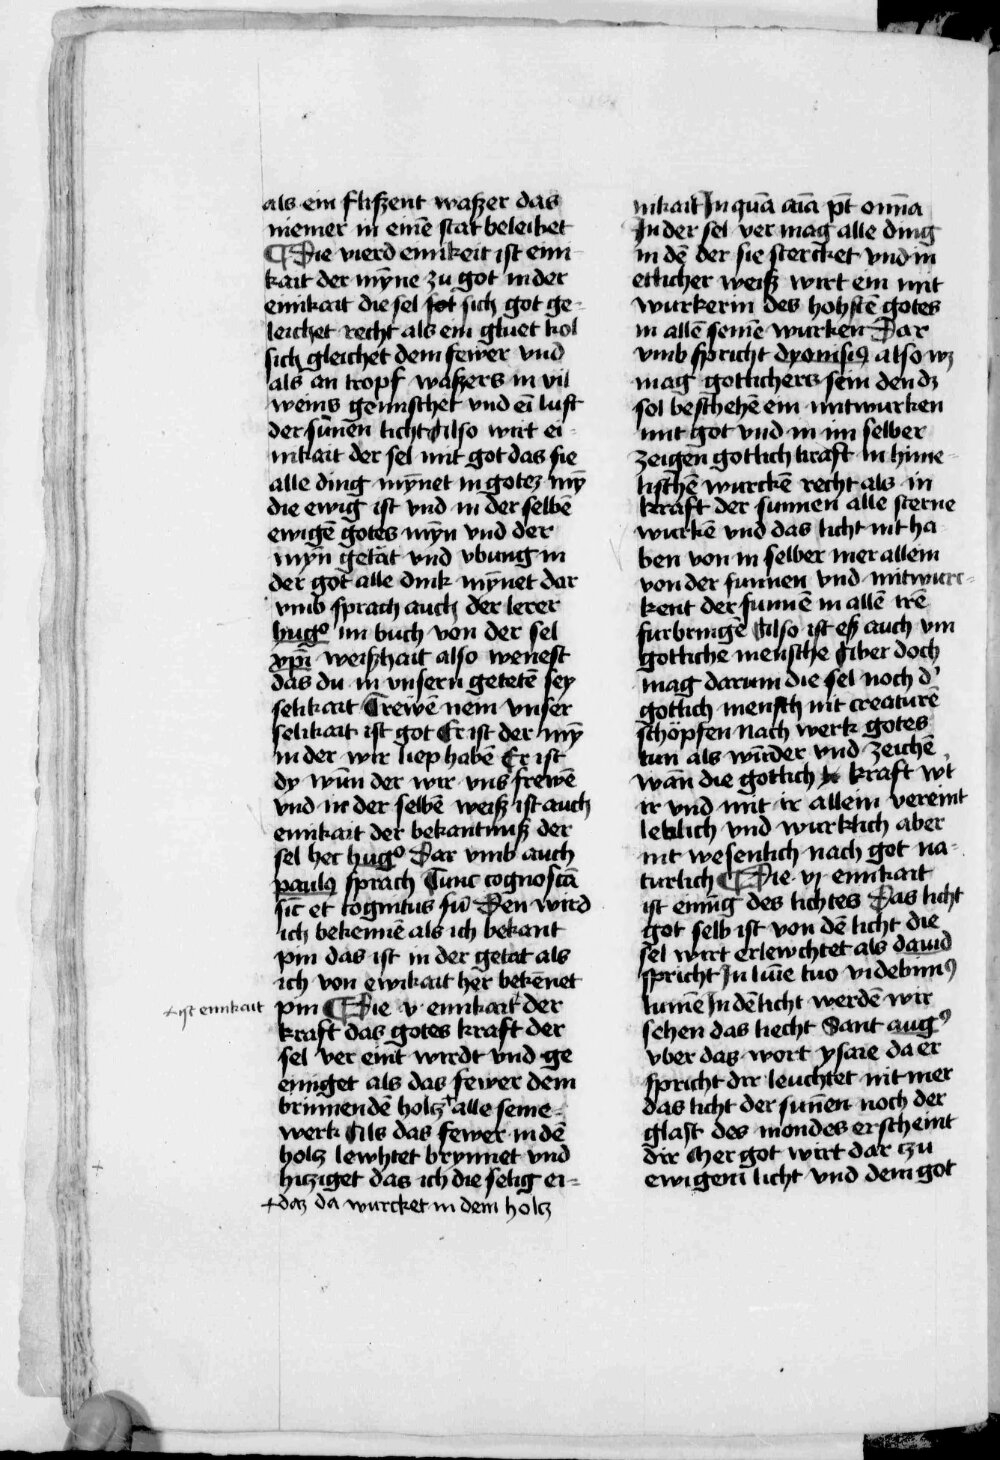 als ein fliſzent waſzer das
niemer in einē ſtat beleibet
¶ Die vierd einikeit iſt eini
kait der mȳne zu got in der
einikait die ſel ſot ſich got ge-
leichet recht als ein gluet kol
ſich gleichet dem fewer vnd
als an tropf waſzers in vil
weins gemiſchet vnd eī luft
der ſūnen licht Alſo wirt ei-
nikait der ſel mit got das ſie
alle ding mȳnet in gotez mȳ
die ewig iſt vnd in der ſelbē
ewigē gotes mȳn vnd der
mȳn getät vnd vbung in
der got alle dink mȳnet dar
vmb ſprach auch der lerer
hugo im buch von der ſel
xpī weiſzhait alſo weneſt
das du in vnſern getetē ſey
ſelikait Trewē nem vnſer
ſelikait iſt got Er iſt der mȳ
in der wir liep habē Er iſt
dy wūn der wir vns frewē
vnd in der ſelbē weiſz iſt auch
einikait der bekantnuſz der
ſel hec hugo Dar vmb auch
paulꝰ ſprach Tunc cognoſcā
ſic̄ et cognitus ſū Den wird
ich bekennē als ich bekant
pin das iſt in der getat als
ich von ewikait her bekēnet
+ iſt einikait
pin ¶ Die v einikait + der
kraft das gotes kraft der
ſel ver eint wirdt vnd ge
einiget als das fewer dem
brinnendē holcz + alle ſeine-
werk Als das fewer in dē
holz lewhtet brynnet vnd
hicziget das ich die ſelig ei-
+ daz da wurcket in dem holcz
nikait In quā aīa pt̄ om̄ia
In der ſel ver mag alle ding
in dē der ſie ſtercket vnd in
etlicher weiſz wirt ein mit
wurkerin des hohſtē gotes
in allē ſeinē wurken Dar
vmb ſpricht dyoniſiꝰ alſo wz
mag gotlichers ſein den dz
ſol beſchehē ein mitwurken
mit got vnd in im ſelber
zeigen gotlich kraft in hime-
liſchē wurckē recht als in
kraft der ſunnen alle ſterne
wurkē vnd das licht nit ha
ben von in ſelber mer allein
von der ſunnen vnd mitwurc-
kent der ſunnē in allē irē
furbringē Alſo iſt eſz auch vm
gotliche menſche Aber doch
mag darum die ſel noch d'
gotlich menſch nit creaturē
ſchöpfen nach werk gotes
tun als wūnder vnd zeichē
wān die gotlich kraft w't
ir vnd mit ir allein vereint
leblich vnd wurklich aber
nit weſenlich nach got na-
turlich ¶ Die vi einikait
iſt einūg des lichtes Das licht
got ſelb iſt von dē licht die
ſel wirt erlewchtet als dauid
ſpricht In lūīe tuo videbimꝰ
lumē In dē licht werdē wir
ſehen das liecht Sant augꝰ
vber das wort yſaie da er
ſpricht dir leuchtet nit mer
das licht der ſunnen noch der
glaſt des mondes erſcheint
dir Mer got wirt dar czu
ewigem licht vnd dein got